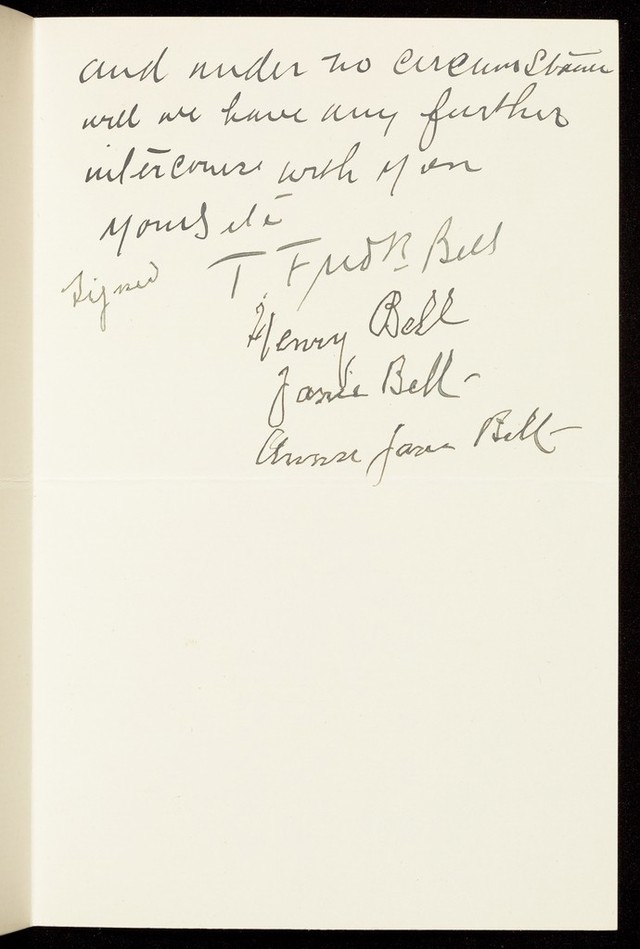 and under no circumstance
will we have any further
intercourse with you
yours etc
Signed T. Fredk Bell
Henry Bell
Janie Bell
Annie Jane Bell